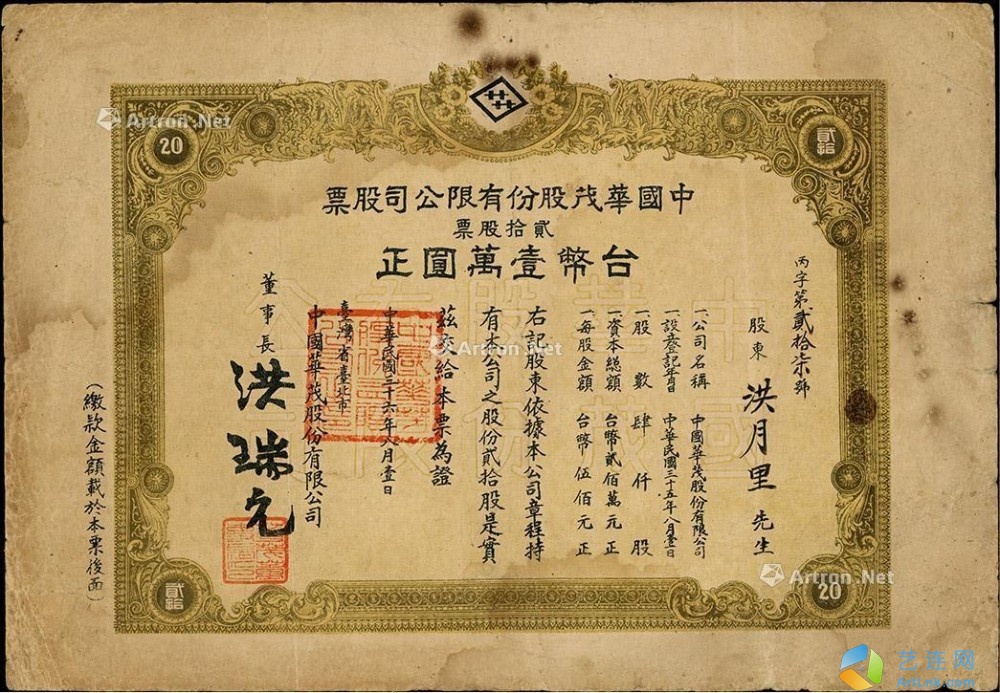 中國華茂股份有限公司股票
貳拾股票
台幣壹萬圓正
丙字第貳拾柒號
股東 洪月里 先生
一、公司名稱 中國華茂股份有限公司
一、設登記年月日 中華民國三十五年八月壹日
一股數 肆仟股
一資本總額 台幣貳佰萬元正
一每股金額 台幣伍佰元正
右記股東依據本公司章程持
有本公司之股份貳拾股是實
茲交給本票為證
中華民國三十六年八月壹日
臺灣省臺北市
中國華茂股份有限公司
董事長 洪瑞元
（繳款金額載於本票後面）
20
貳拾
貳拾
20
中華股有公
國茂份
Artron.Net
Artron.Net
Artron.Net
Artron.Net
艺连网